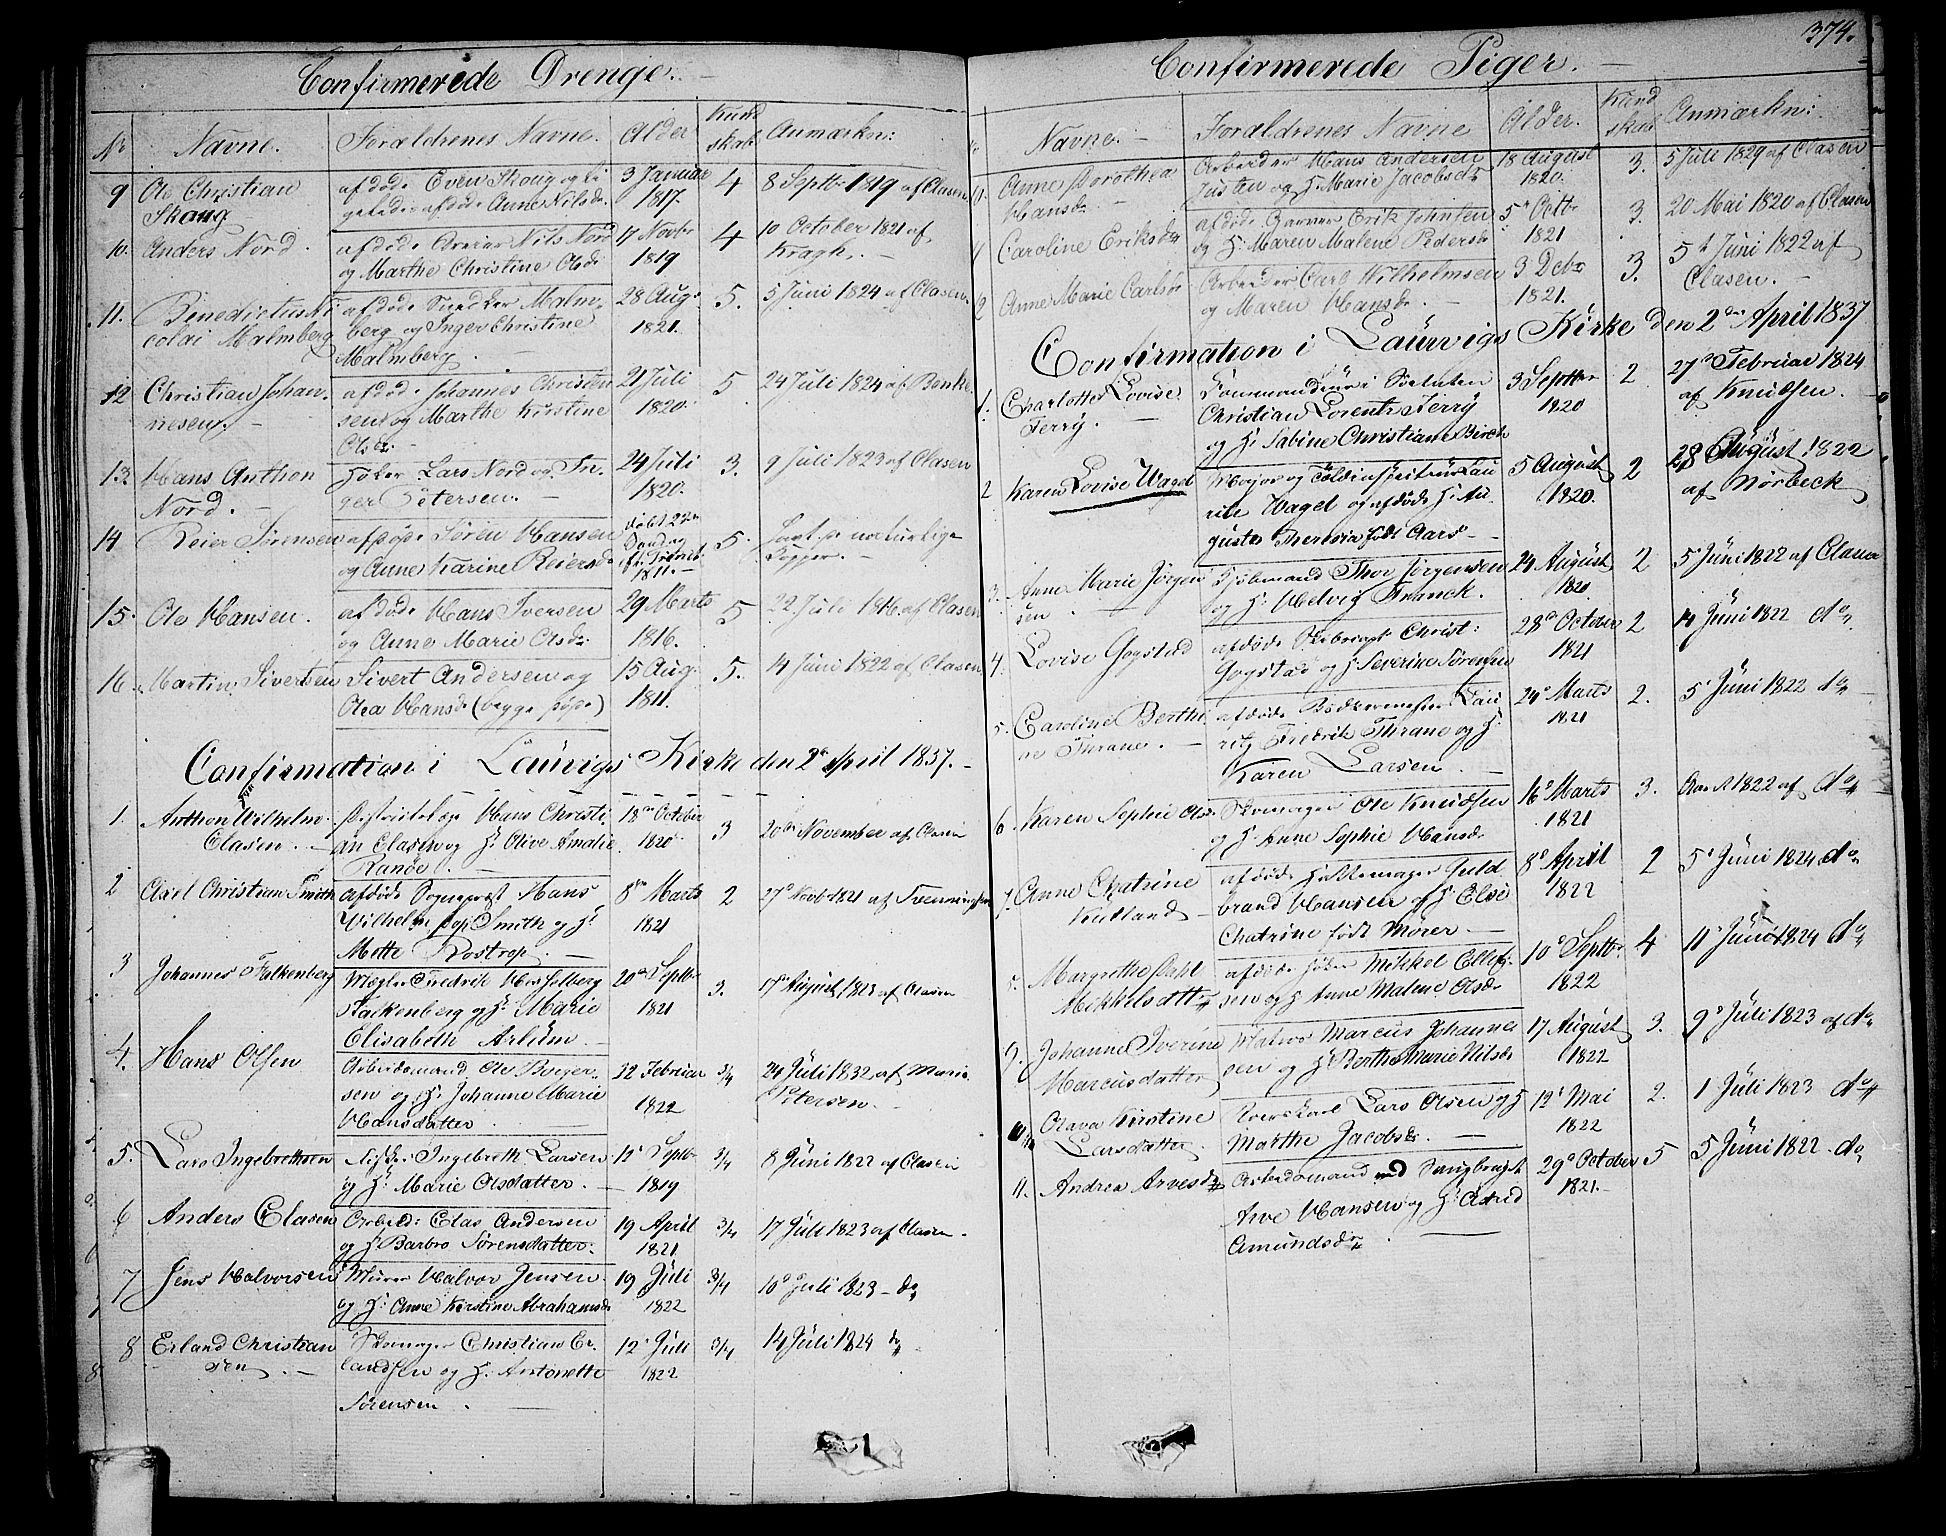 374.
Confirmerede Drenge.
No Navne. Forældrenes Navne. Alder Kund skab Anmærkn:
9 Ole Christian Skaug
afdøde Even Skoug og li
geledes afdøde Anne Nilsdr
3 Januar 1817. 4 8 Septbr 1819 af Clasen
10. Anders Nord.
afdøde Nils Nord
og Marthe Christine Olsdr
17 Novbr 1819 4 10 October 1821 af Kragh.
11. Benedictus Ni
colai Malmberg
afdøde Snedker Malm,
berg og Inger Christine
Malmberg.
28 Aug. 1821. 5. 5 Juni 1824 af Clasen.
12 Christian Johan-
nesen.
afdøde Johannes Christen
sen og Marthe Kirstine
Olsdr.
21 Juli 1820. 5 24 Juli 1824 af Benke
13. Hans Anthon
Nord.
Høker Lars Nord og In,
ger Petersen.
24 Juli 1820. 3. 9 Juli 1823 af Clasen
14 Reier Sørensen
Søren Hansen
og Anne Karine Reiersdr
døbt 22 Søndag
1811. 5. naturlige Kopper.
15. Ole Hansen.
afdøde Hans Iversen
og Anne Marie Olsdr
29 Marts 1816. 5 22 Juli 1816 af Clasen
16. Martin Sivertsen
Sivert Andersen og
Olea Hansdr (begge)
15 Aug. 1811. 5. 14 Juni 1822 af Clasen
Confirmation i Laurvigs Kirke den 2 April 1837.
1. Anthon Wilhelm
Clasen.
Districtslæge Hans Christi,
an Clasen og H: Olive Amalie
Ranøe.
18 October 1820 3 20 November af Clasen
2 Carl Christian Smith
afdøde Sognepræst Hans
Wilhelm Smith og H:
Mette Rostrop.
8 Marts 1821 2 27 Novb. 1821 af Svenningsen
3 Johannes Falkenberg
Mægler Fredrik Hesselberg
Falkenberg og H: Marie
Elisabeth Arlum
20 Septbr 1821 3. 17 August 1823 af Clasen
4. Hans Olsen
Arbeidsmand Ole Borger-
sen og H: Johanne Marie
Hansdatter
22 Februar 1822 3/4 24 Juli 1832 af Maria Petersen.
5. Lars Ingebrethsen
Fisk: Ingebreth Larsen
og H: Marie Olsdatter.
12 Septbr 1819 3/4 8 Juni 1822 af Clasen
6 Anders Clasen
Arbeid: Clas Andersen
og H: Barbro Sørensdatter.
19 April 1821. 3/4 17 Juli 1823 af Clasen.
7 Jens Halvorsen
Murer Halvor Jensen
og H: Anne Kirstine Abrahamsdr
19 Juli 1822 3/4 10 Juli 1823 - do
8 Erland Christian
sen.
Skomager Christian Er,
landsen og H: Antonette
Sørensen.
12 Juli 1822 3/4 14 Juli 1824 do
Confirmerede Piger.
Navne. Forældrenes Navne Alder. Kund skab Anmærkn:
10. Anne Dorothea
Hansdr
Arbeider Hans Andersen
Justen og H: Marie Jacobsdr
18 August 1820. 3. 5 Juli 1829 af Clasen
11 Caroline Eriksdr
afdøde Garver Erik Johnsen
og H: Maren Malene Pedersdr
5 Octbr 1821 3. 20 Mai 1820 af Clasen
12 Anne Marie Carlsdr
Arbeider Carl Wilhelmsen
og Maren Hansdr.
3 Debr 1821. 3. 5 Juni 1822 af Clasen.
Confirmation i Laurvigs Kirke den 2den April 1837
1. Charlotte Lovise
Ferry.
Commandeur i Søetaten
Christian Lorentz Ferry
og H: Sabine Christiane Birch
3 Septbr 1820 2 27 Februar 1824 af Knudsen.
2 Karen Lovise Wagel
Major og Toldinspecteur Lau
ritz Wagel og afdøde H: Au
gusta Theresia født Aars
5 August 1820. 2 28 August 1822 af Nørbeck
3. Anne Marie Jørgen
sen
Thor Jørgensen
og H: Helvig Franck.
24 August 1820 2 5 Juni 1822 af Clasen
4. Lovise Gogstad
afdøde Christ:
Gogstad og H: Severine Sørensen
28 October 1821 2 14 Juni 1822 do
5. Caroline Berthi
ne Thrane.
afdøde Lau
ritz Fredrik Thrane og H:
Karen Larsen.
24 Marts 1821 2. 5 Juni 1822 do
6. Karen Sophie Olsdr
Skomager Ole Knudsen
og H: Anne Sophie Hansdr
16 Marts 1821 3. 1822 af do
7. Anne Chatrine
Knutland
afdøde Guld,
brand Hansen og H: Else
Chatrine født Mörer
8 April 1822 2 5 Juni 1824 do
8. Margrethe Dahl
Mikkelsdatter
afdøde Høker Mikkel Ellef,
sen og H: Anne Malene Olsdr
10 Septbr 1822 4 11 Juni 1824 do
9. Johanne Iverine
Marcusdatter
Matros Marcus Johannes
sen og H: Berthe Marie Nilsdr
17 August 1822 3. 9 Juli 1823 af do
10 Olava Kirstine
Larsdatter.
Lars Olsen og H:
Marthe Jacobsdr.
12 Mai 1822 2. 1 Juli 1823 do
11. Andrea Arvesdr
Arbeidsmand ved Langbrygt
Arve Hansen og H: Astrid
Amundsdr.
29 October 1821. 5 5 Juni 1822. do